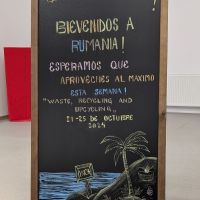 BIENVENIDOS A
RUMANIA!
ESPERAMOS QUE
APROVÉCHES AL MAXIMO
ESTA SEMANA!
"WASTE, RECYCLING AND
UPCYCLING"
21-25 DE OCTUBRE
2024